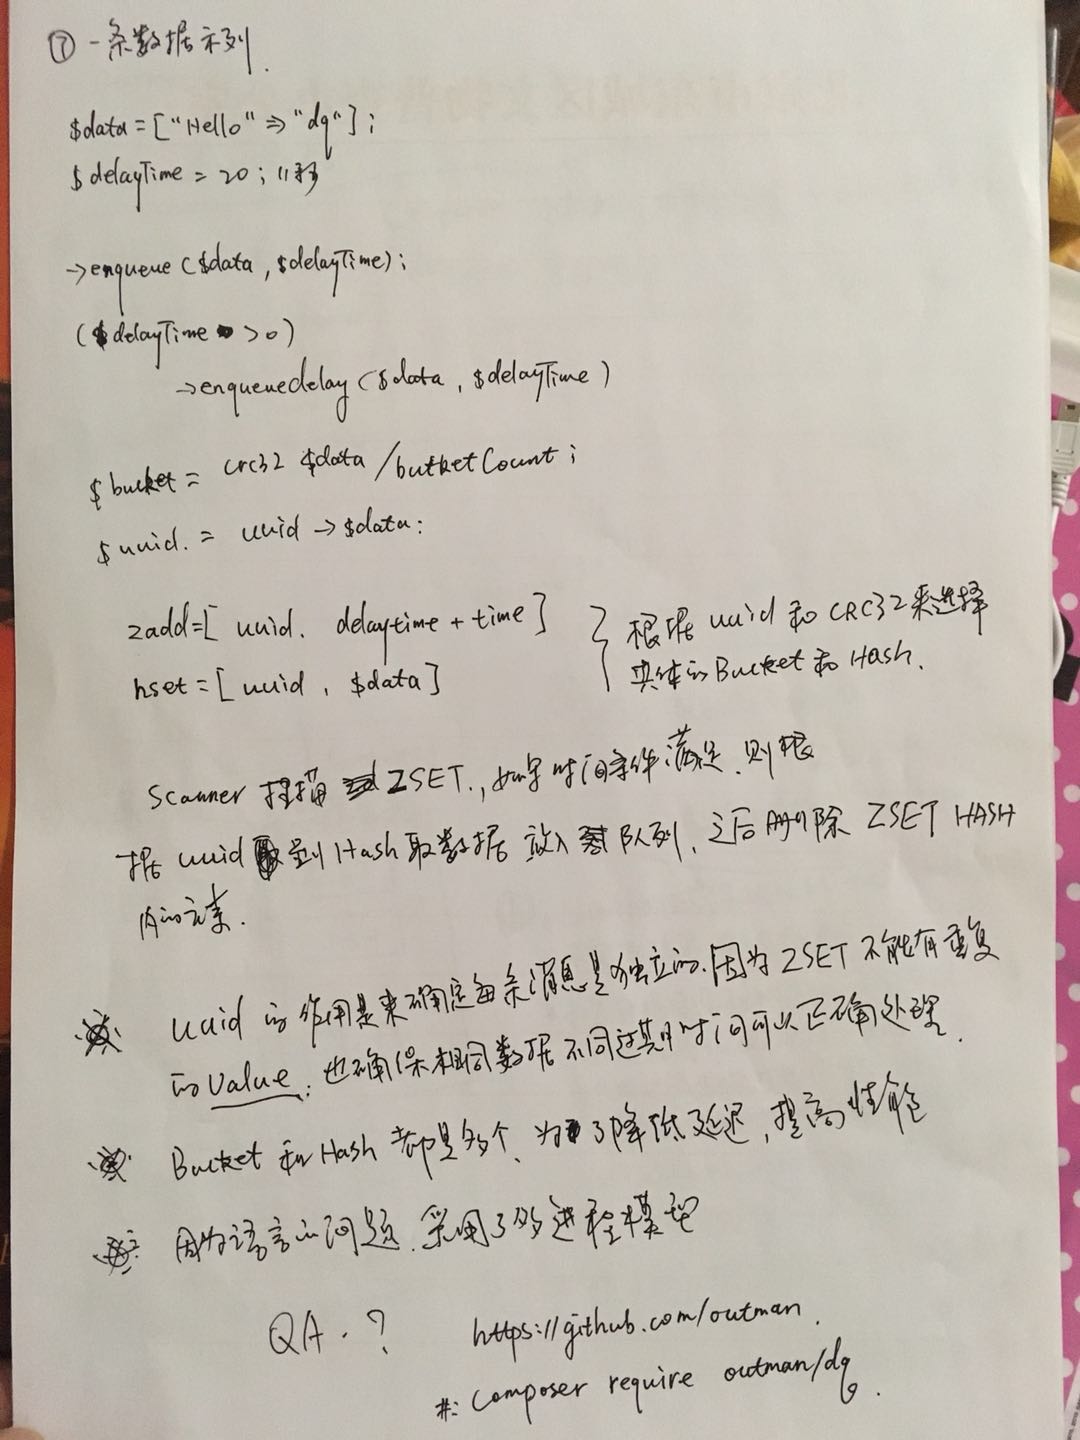 ⑦ 一条数据示列.
$data = ["Hello" => "dq"];
$delayTime = 20; //秒
->enqueue($data, $delayTime);
($delayTime > 0)
->enqueuedelay($data, $delayTime)
$bucket = crc32 $data / butketCount;
$uuid. = uuid -> $data;
zadd=[ uuid. delaytime + time ]
hset = [ uuid, $data ]
} 根据 uuid 和 CRC32来选择
具体的Bucket和Hash.
Scanner 扫描 ZSET., 如果时间条件满足, 则根
据 uuid 到Hash取数据 放入 队列, 之后删除 ZSET HASH
内的元素.
uuid 的作用是来确定每条消息是独立的. 因为 ZSET 不能有重复
的value, 也确保相同数据不同过期时间可以正确处理.
Bucket 和 Hash 都是多个, 为了降低延迟, 提高性能
因为语言的问题, 采用了多进程模型
QA. ?
https://github.com/outman.
#: composer require outman/dq.